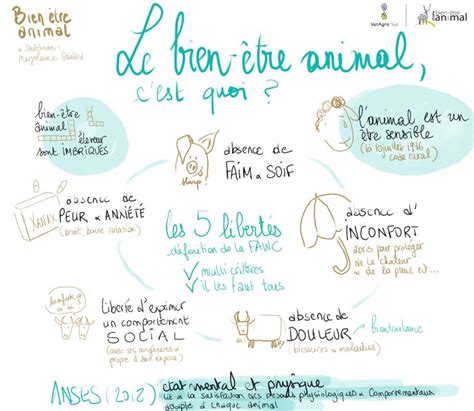 Bien être
animal
VetAgro Sup
bien-être
animal
Le bien-être animal,
c'est quoi ?
bien-être
animal
éleveur
sont IMBRIQUÉS
l'animal est un
être sensible
(10 juillet 1976
code rural)
absence de
FAIM & SOIF
slurp
absence de
PEUR & ANXIÉTÉ
(bruit, bonne relation)
XANAX
les 5 libertés
définition de la FAWC
multi critères
il les faut tous
absence d'
INCONFORT
abris pour protéger
de la chaleur
& de la pluie et...
liberté d'exprimer
un comportement
SOCIAL
(avec ses congénères &
propre à son espèce)
absence de
DOULEUR
(blessures & maladies)
bientraitance
ANSES (2018)
etat mental et physique
lié à la satisfaction des besoins physiologiques & comportementaux
adapté à chaque animal